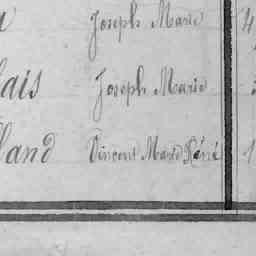 Joseph Marie 4
lais Joseph Marie
lland Vincent Marie Réné 1